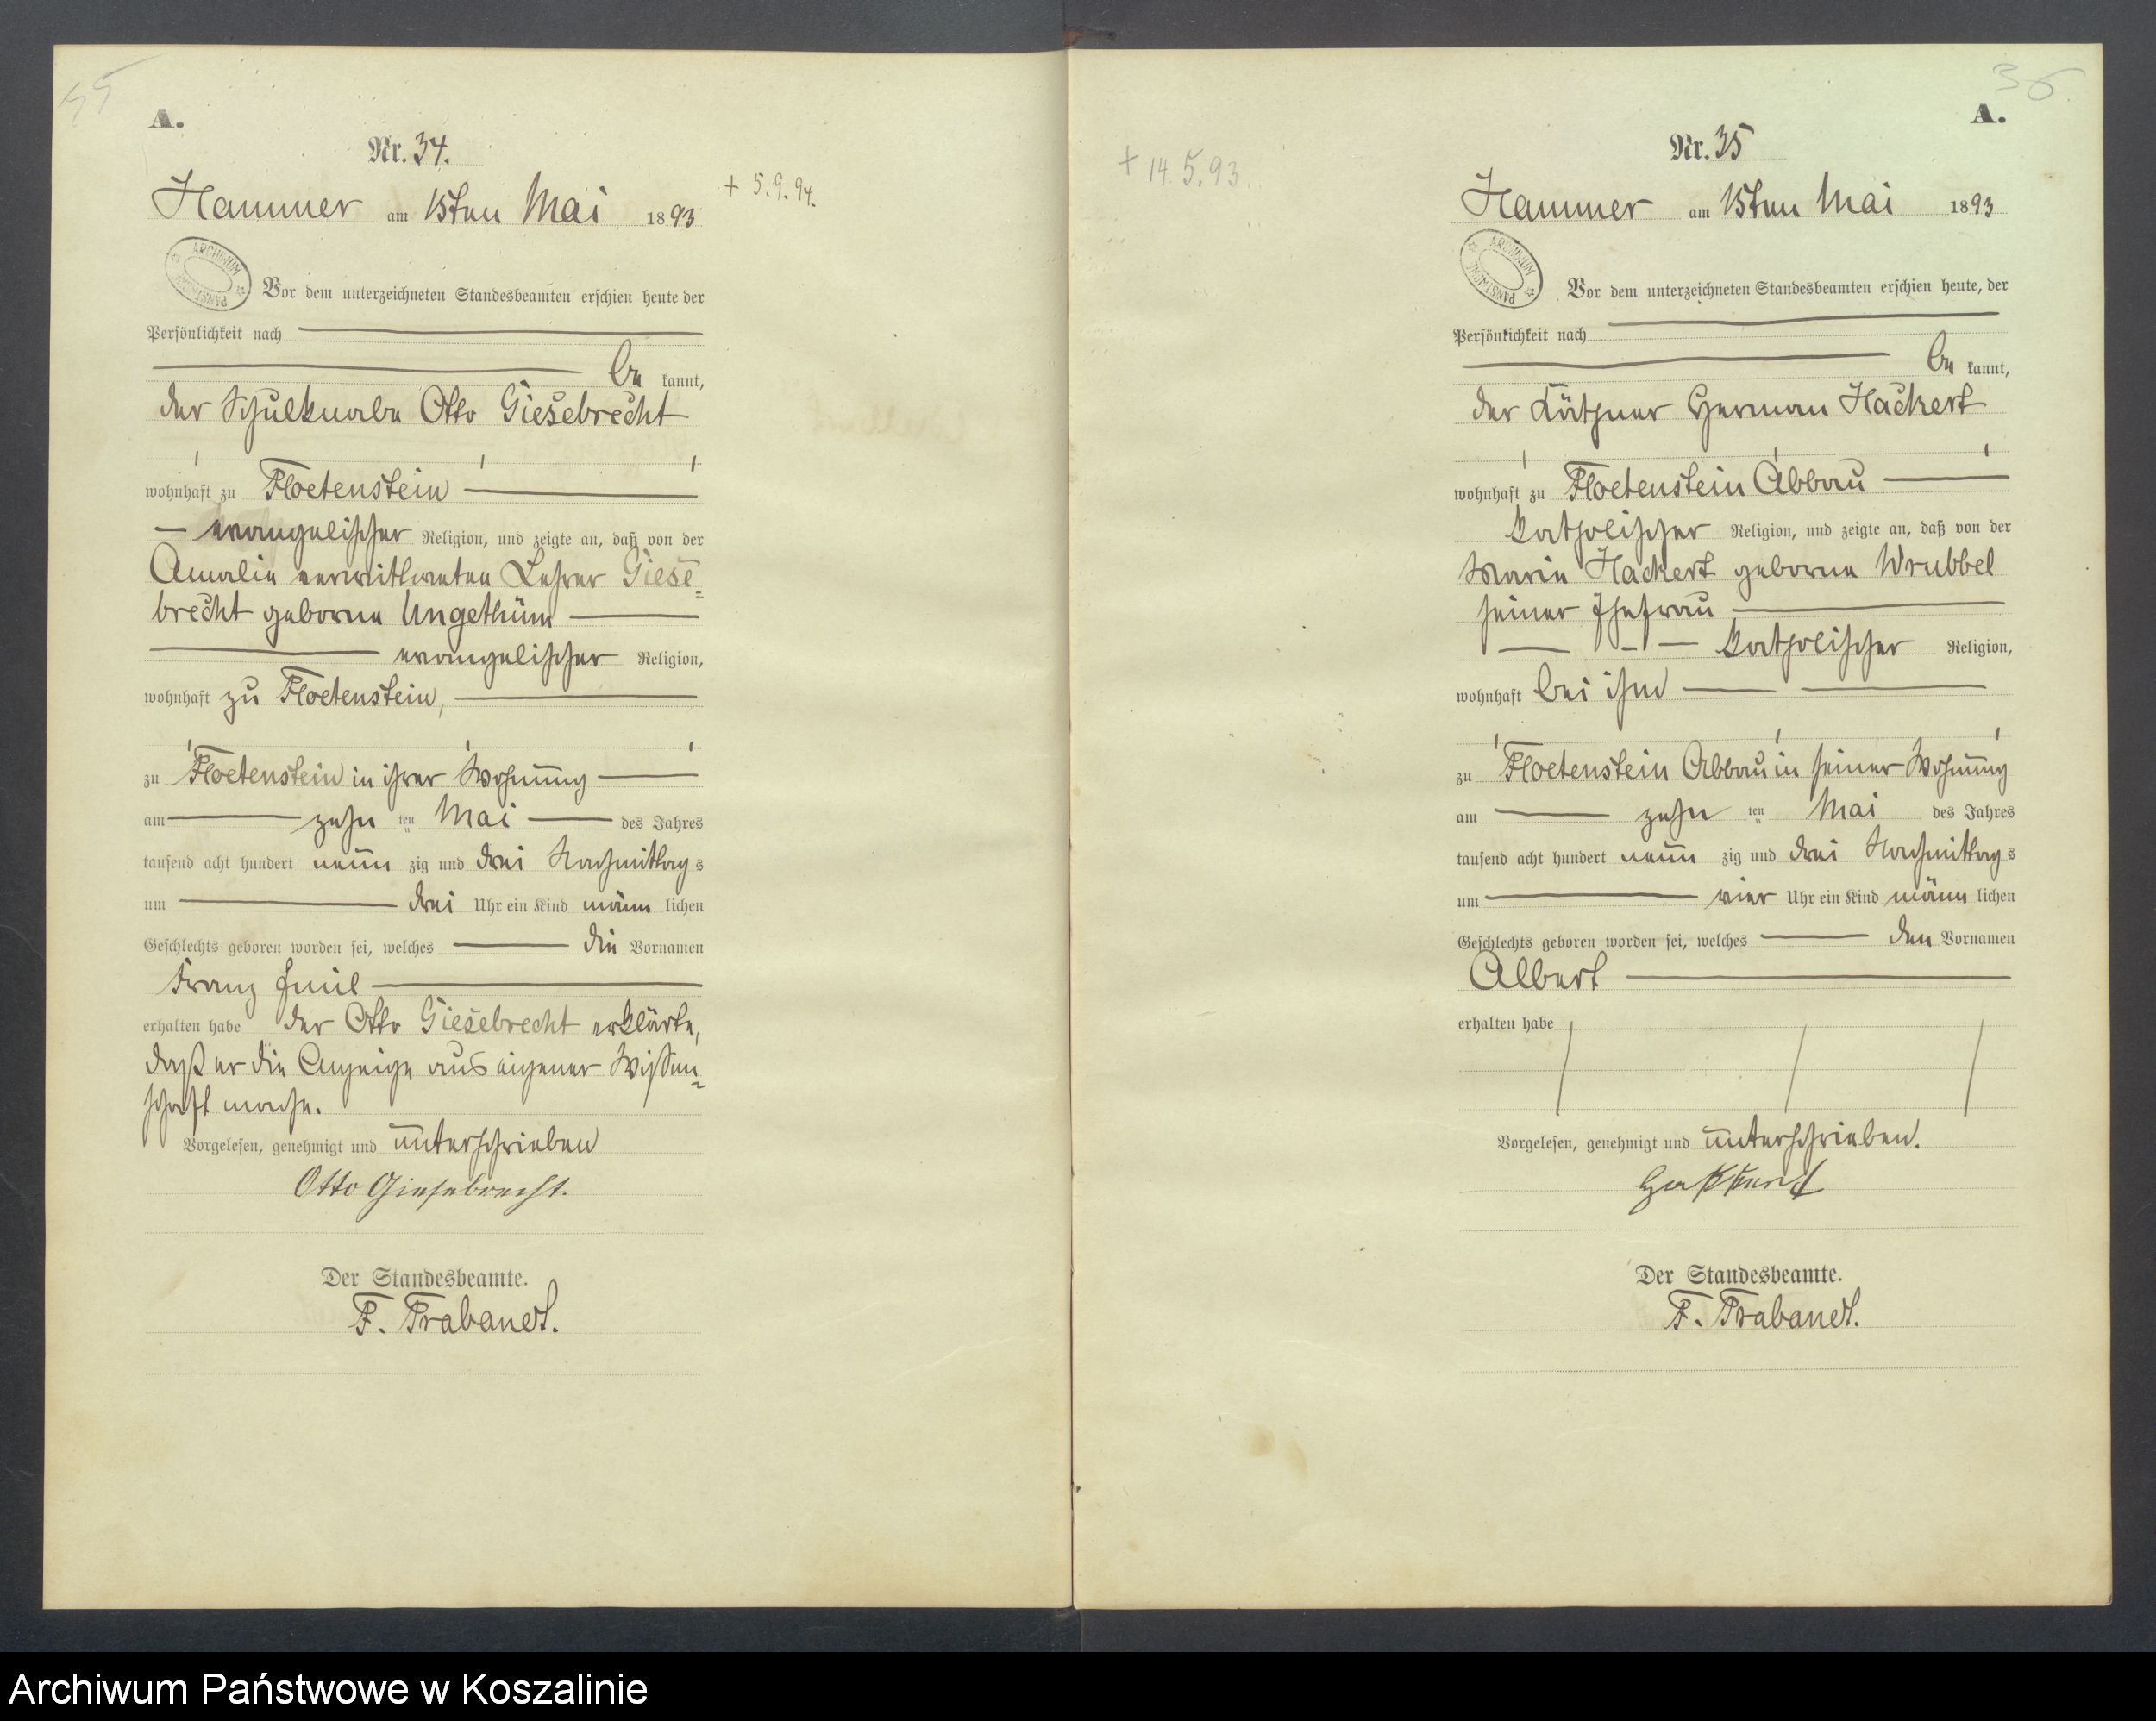 A.
Nr. 34.
Hammer am 15ten Mai 1893
+ 5.9.94.
ARCHIWUM PAŃSTWOWE
Vor dem unterzeichneten Standesbeamten erschien heute der
Persönlichkeit nach
be kannt,
der Schulknabe Otto Giesebrecht
wohnhaft zu Floetenstein
evangelischer Religion, und zeigte an, daß von der
Amalie verwittweten Lehrer Giese=
brecht geborne Ungethüm
evangelischer Religion,
wohnhaft zu Floetenstein,
zu Floetenstein in ihrer Wohnung
am zehn ten Mai des Jahres
tausend acht hundert neun zig und drei Nachmittag s
um drei Uhr ein Kind männ lichen
Geschlechts geboren worden sei, welches die Vornamen
Franz Emil
erhalten habe der Otto Giesebrecht erklärte,
daß er die Anzeige aus eigener Wissen=
schaft mache.
Vorgelesen, genehmigt und unterschrieben
Otto Giesebrecht.
Der Standesbeamte.
F. Trabandt.
36
A.
Nr. 35
+ 14.5.93.
Hammer am 15ten Mai 1893
ARCHIWUM PAŃSTWOWE
Vor dem unterzeichneten Standesbeamten erschien heute, der
Persönlichkeit nach
be kannt,
der Käthner Herman Hackert
wohnhaft zu Floetenstein Abbau
katholischer Religion, und zeigte an, daß von der
Marie Hackert geborne Wrubbel
seiner Ehefrau
katholischer Religion,
wohnhaft bei ihm
zu Floetenstein Abbau in seiner Wohnung
am zehn ten Mai des Jahres
tausend acht hundert neun zig und drei Nachmittag s
um vier Uhr ein Kind männ lichen
Geschlechts geboren worden sei, welches den Vornamen
Albert
erhalten habe
Vorgelesen, genehmigt und unterschrieben.
Der Standesbeamte.
F. Trabandt.
Archiwum Państwowe w Koszalinie